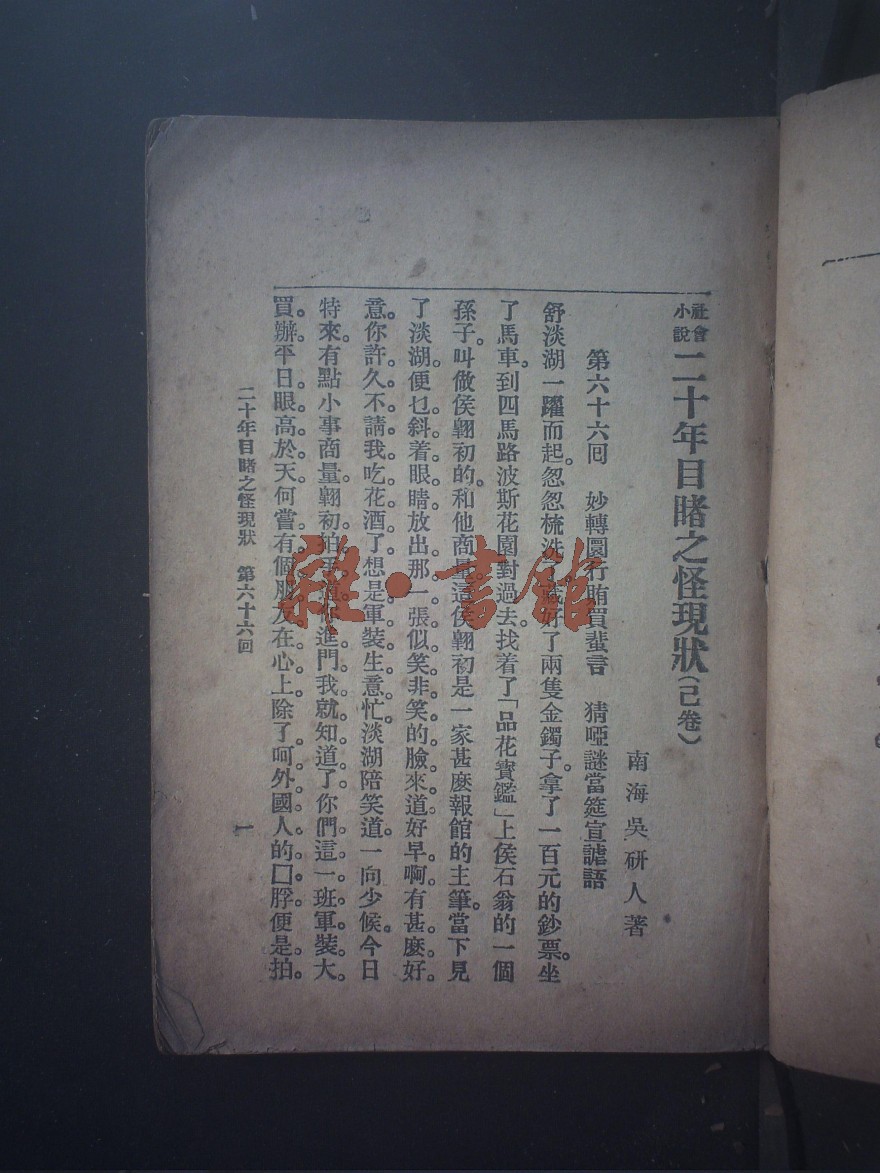 社會小說 二十年目睹之怪現狀(己卷)
南海吳硏人著
第六十六回 妙轉圜行賄買蜚言 猜啞謎當筵宣謔語
舒淡湖一躍而起。怱怱梳洗了。藏好了兩隻金鐲子。拿了一百元的鈔票。坐
了馬車。到四馬路波斯花園對過去。找着了「品花寶鑑」上侯石翁的一個
孫子。叫做侯翺初的。和他商量。這侯翺初是一家甚麽報館的主筆。當下見
了淡湖。便乜斜着眼睛。放出那一張似笑非笑的臉來道。好早啊。有甚麽好
意。你許久不請我吃花酒了。想是軍裝生意忙。淡湖陪笑道。一向少候。今日
特來有點小事商量。翺初拍手道。你進門我就知道了。你們這一班軍裝大
買辦。平日眼高於天。何嘗有個朋友在心上。除了呵外國人的囗脬。便是拍
二十年目睹之怪現狀 第六十六回 一
雜·書館